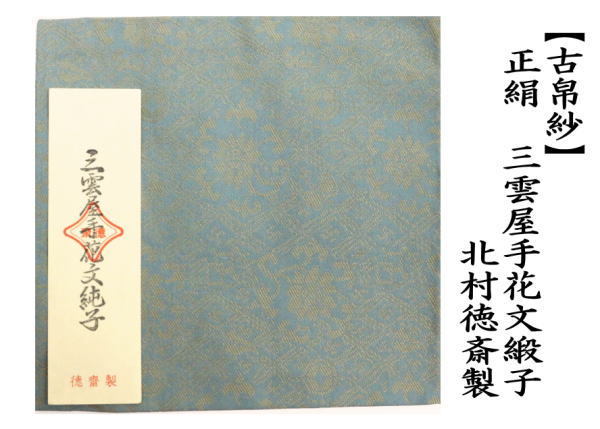 【古帛紗】
正絹　三雲屋手花文緞子
北村徳斎製
三雲屋手花文純子
徳齋製